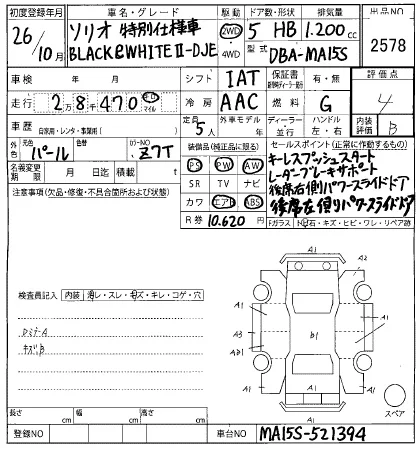 初度登録年月 車名・グレード 駆動 ドア数・形状 排気量 出品NO
26/10月 ソリオ 特別仕様車 2WD 5 HB 1.200cc 2578
BLACK&WHITEⅡ-DJE 4WD 型式 DBA-MA15S
車検 年 月 シフト IAT 保証書 有・無 評価点
走行 28470 km マイル 冷房 AAC 燃料 G 4
車歴 自家用・レンタ・事業用( ) 定員 5人 外車モデル 年 ディーラー 並行 ハンドル 左・右 内装評価 B
元色 パール 色替 カラーNO Z7T 装備品(純正品に限る) セールスポイント(正常に作動するもの)
名義変更期限 月 日 積載 t PS PW AW キーレスプッシュスタート
注意事項(欠品・修復・不具合箇所および状態) SR TV ナビ レーダーブレーキサポート
カワ エアB ABS 後席右側パワースライドドア
R券 10.620円 後席左側パワースライドドア
Fガラス・トビ石・キズ・ヒビ・ワレ・リペア跡
A1
検査員記入 内装 汚レ・スレ・キズ・キレ・コゲ・穴
A1 A1
ロミナA A3 b1 A1
キズ、B A1
A1
スペア
長さ cm 幅 cm 高さ cm
登録NO 車台NO MA15S-521394